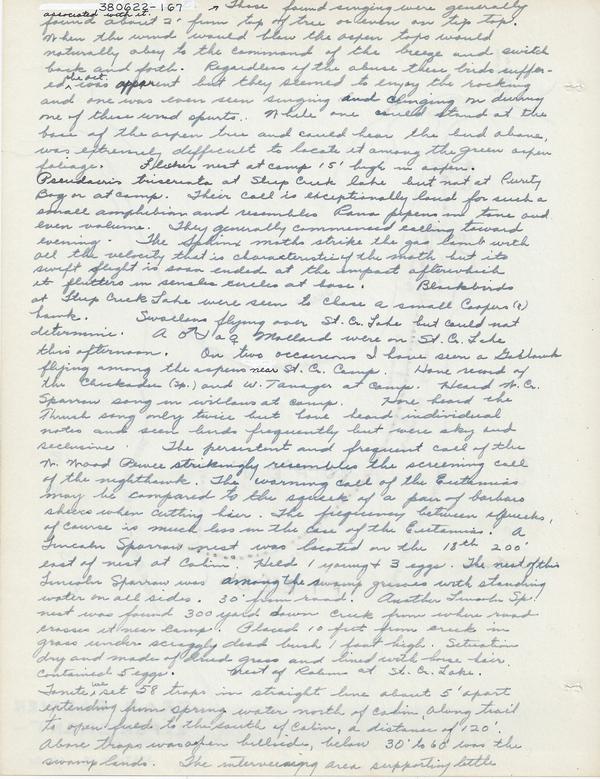 380622-167
associated with it. Those found singing were generally
found about 2' from top of tree or even on tip top.
When the wind would blow the aspen tops would
naturally obey to the command of the breeze and switch
back and forth. Regardless of the abuse these birds suffer-
ed the act was apparent but they seemed to enjoy the rocking
and one was even seen singing and clinging on during
one of these wind spurts. While one could stand at the
base of the aspen tree and could hear the bird above,
was extremely difficult to locate it among the green aspen
foliage. Flicker nest at camp 15' high in aspen.
Pseudacris triseriata at Sheep Creek lake but not at Purity
Bog or at camp. Their call is exceptionally loud for such a
small amphibian and resembles Rana pipens in tone and
even volume. They generally commenced calling toward
evening. The Sphinx moths strike the gas lamb with
all the velocity that is characteristic of the moth but its
swift flight is soon ended at the impact afterwhich
it flutters in sensles circles at base. Blackbirds
at Sheep Creek Lake were seen to chase a small Coopers (?)
hawk. Swallows flying over St. Cr. Lake but could not
determine. A ♂ and a ♀ Mallard were on St. Cr. Lake
this afternoon. On two occasions I have seen a Goshawk
flying among the aspens near St. Cr. Camp. Have record of
the Chickadee (sp.) and W. Tanager at camp. Heard W. Cr.
Sparrow song in willows at camp. Have heard the
Thrush song only twice but have heard individual
notes and seen birds frequently but were shy and
seclusive. The persistent and frequent call of the
W. Wood Pewee strikingly resembles the screening call
of the nighthawk. The warning call of the Eutamias
may be compared to the squeek of a pair of barbars
shears when cutting hair. The frequency between squeeks,
of course is much less in the case of the Eutamias. A
Lincoln Sparrow nest was located on the 18th 200'
east of nest at Cabin. Held 1 young + 3 eggs. The nest of this
Lincoln Sparrow was among the swamp grasses with standing
water on all sides. 30' from road. Another Lincoln Sp.
nest was found 300 yard down creek from where road
crosses it near camp. Placed 10 feet from creek in
grass under scraggly dead bush 1 foot high. Situation
dry and made of dried grass and lined with horse hair.
contained 5 eggs. Nest of Robin at St. Cr. Lake.
Tonite, we set 58 traps in straight line about 5' apart
extending from spring water north of cabin, along trail
to open field to the south of Cabin, a distance of 120'.
Above traps was open hillside, below 30' to 60' was the
swamp lands. The intervening area supporting little